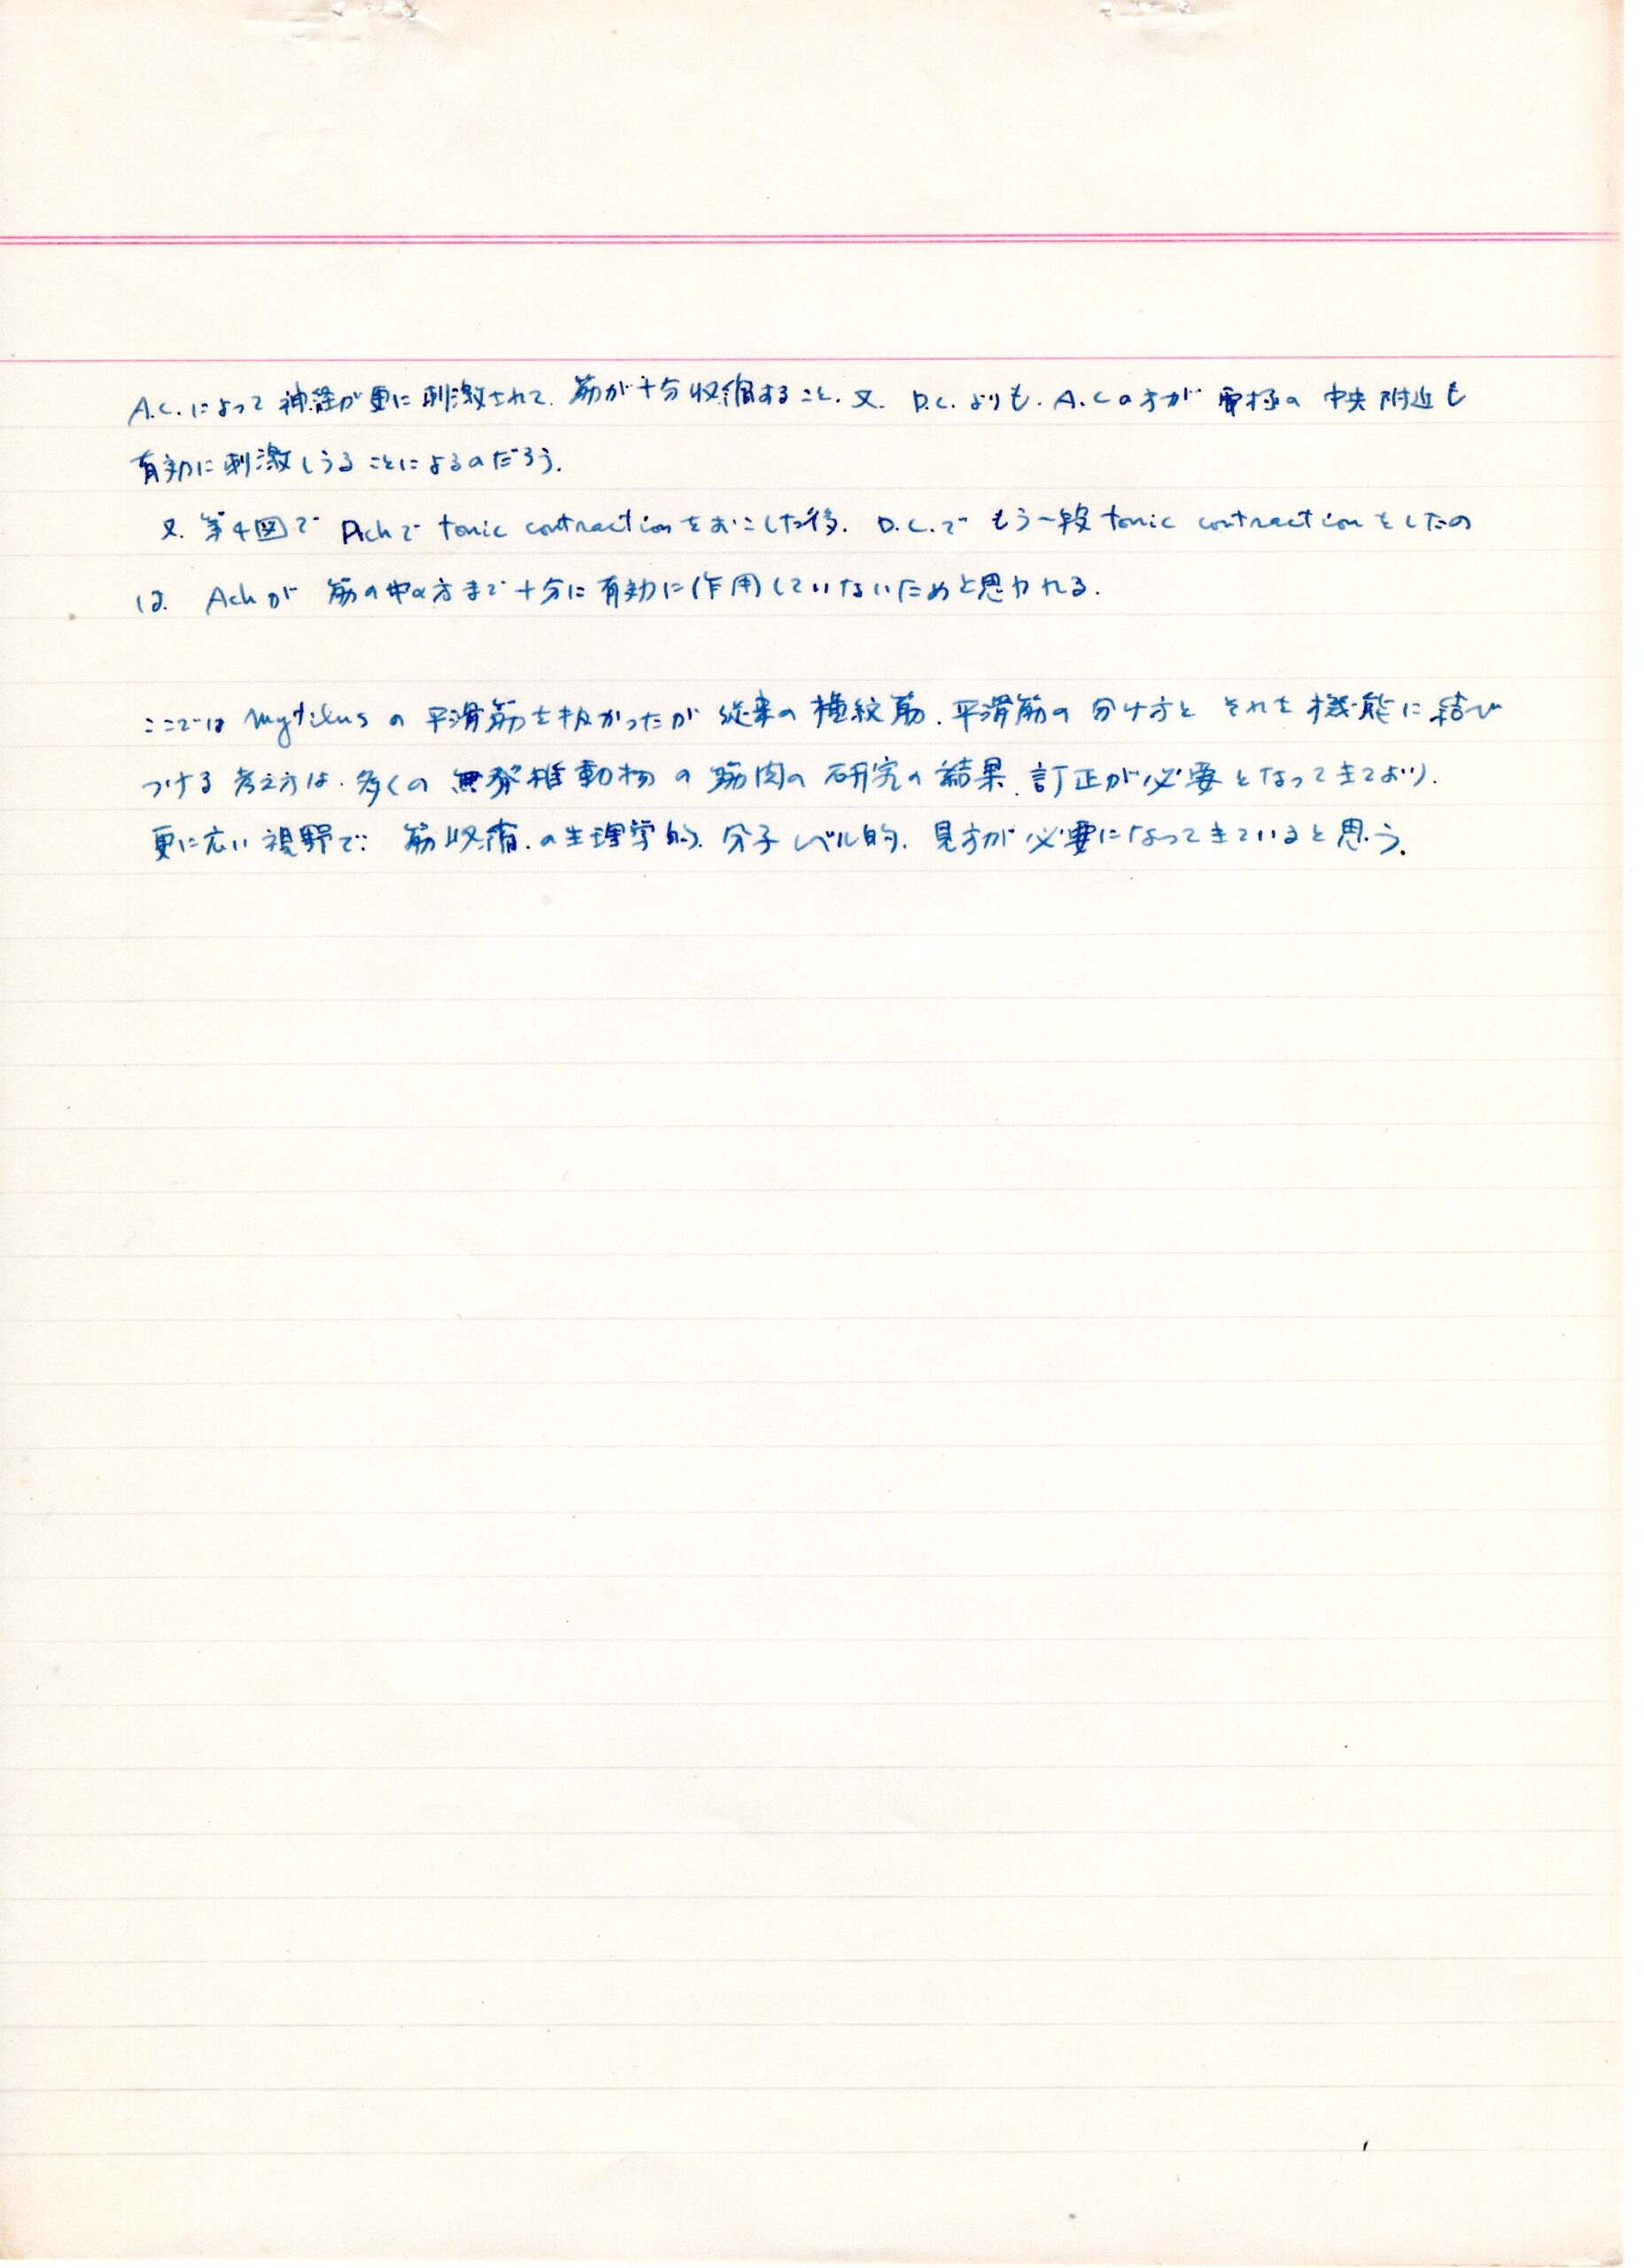 A.C.によって神経が更に刺激されて、筋が十分収縮すること、又、D.C.よりも、A.Cの方が電極の中央附近も
有効に刺激しうることによるのだろう。
又、第4図で Achで tonic contractionをおこした後、D.C.で もう一段 tonic contractionをしたの
は、Achが 筋の中の方まで十分に有効に作用していないためと思われる。
ここでは Mytilus の平滑筋を扱かったが従来の横紋筋、平滑筋の分け方と それを機能に結び
つける考え方は、多くの無脊椎動物の筋肉の研究の結果、訂正が必要となってきており、
更に広い視野で、筋収縮、の生理学的、分子レベル的、見方が必要になってきていると思う。